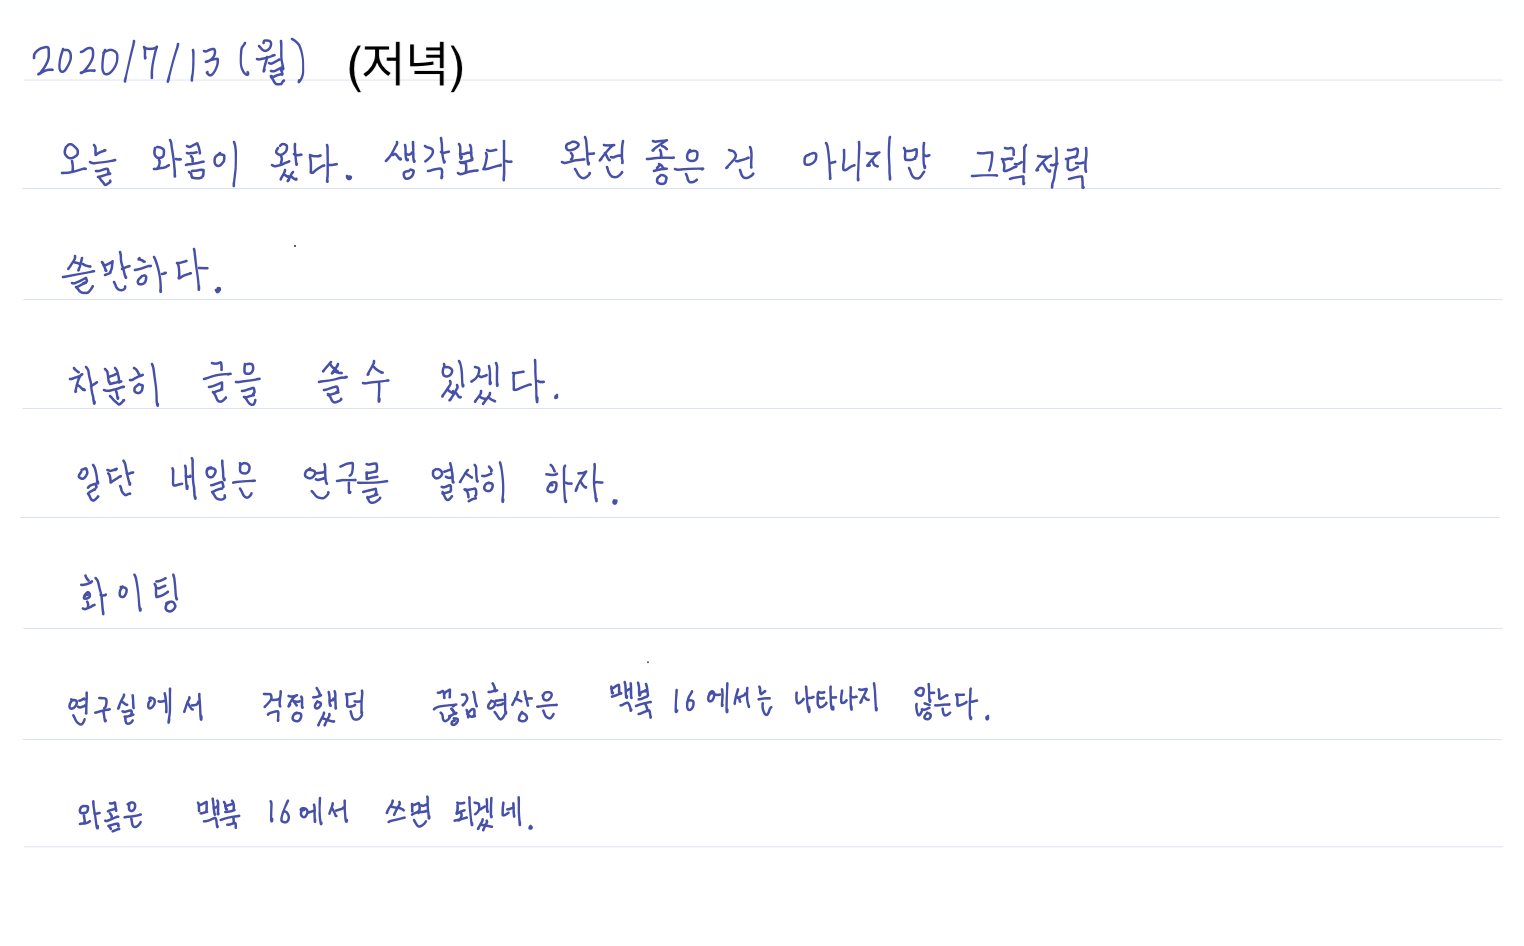 2020/7/13 (월) (저녁)
오늘 와콤이 왔다. 생각보다 완전 좋은 건 아니지만 그럭저럭
쓸만하다.
차분히 글을 쓸 수 있겠다.
일단 내일은 연구를 열심히 하자.
화이팅
연구실에서 걱정했던 끊김현상은 맥북 16에서는 나타나지 않는다.
와콤은 맥북 16에서 쓰면 되겠네.